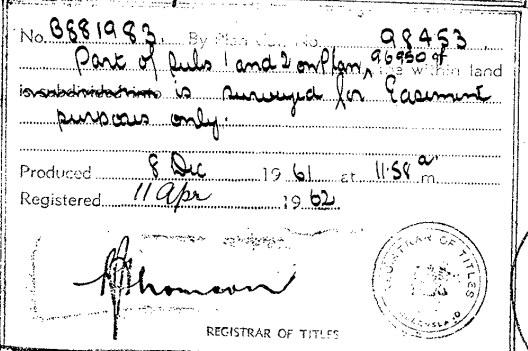 No. B881983. By Plan Cat. No. 98453.
Part of subs 1 and 2 on Plan 96950 of the within land
is subdivided into is surveyed for Easement
purposes only.
Produced 8 Dec 1961 at 11.58 a.m.
Registered 11 Apr 1962.
Thomson
REGISTRAR OF TITLES
REGISTRAR OF TITLES
QUEENSLAND